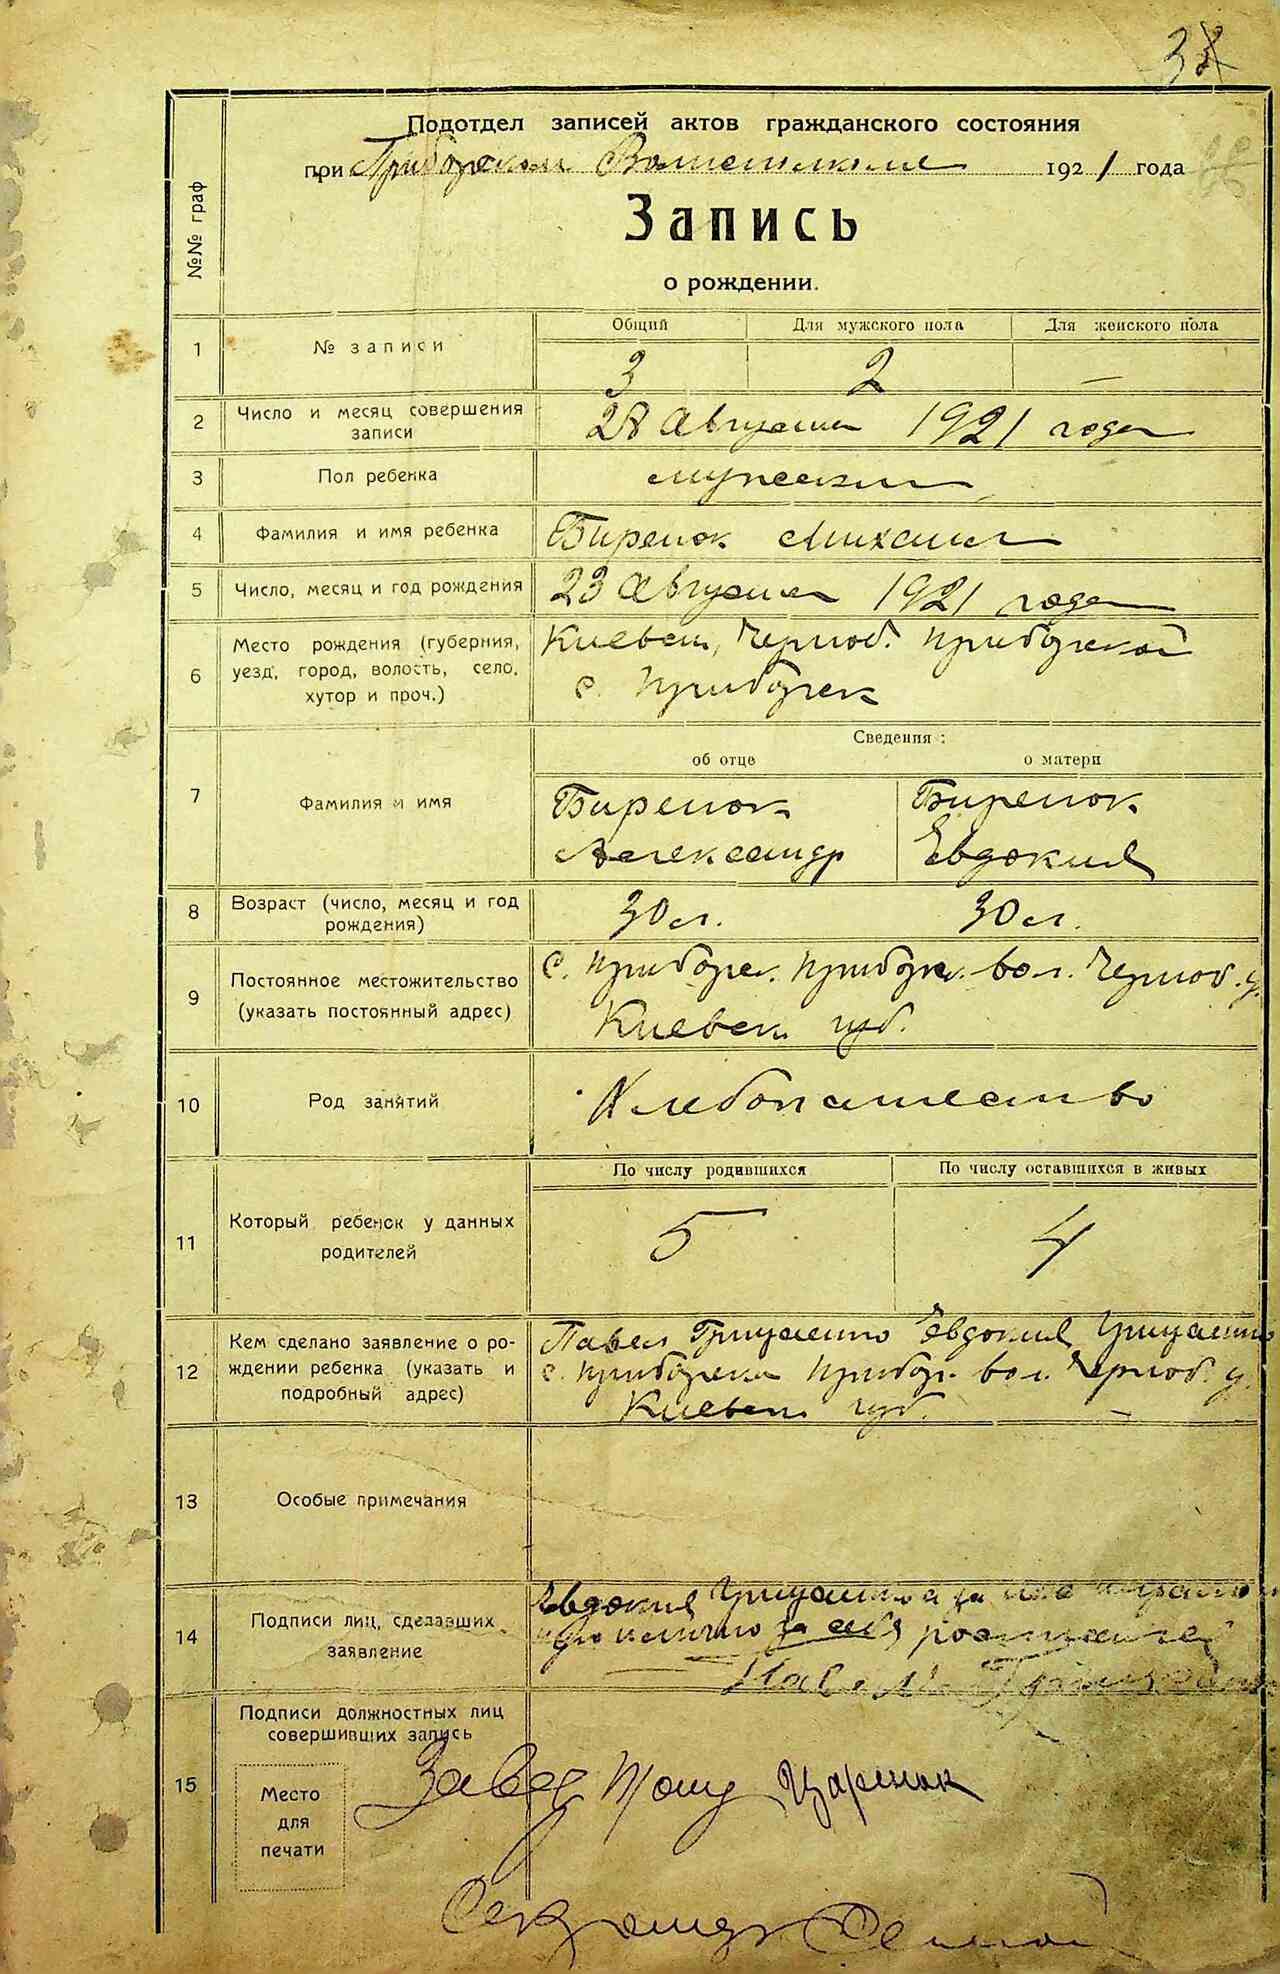 3
Подотдел записей актов гражданского состояния
при Приборском Волисполкоме 1921 года
№№ граф
Запись
о рождении.
Общий Для мужского пола Для женского пола
1 № записи 3 2 —
2 Число и месяц совершения записи 28 Августа 1921 года
3 Пол ребенка мужеский
4 Фамилия и имя ребенка Биренок Михаил
5 Число, месяц и год рождения 23 Августа 1921 года
6 Место рождения (губерния, Киевск, Черноб. Приборской
уезд, город, волость, село, с. Приборск
хутор и проч.)
Сведения:
об отце о матери
7 Фамилия и имя Биренок Биренок
Александр Евдокия
8 Возраст (число, месяц и год рождения) 30 л. 30 л.
9 Постоянное местожительство с. Приборск. Приборск. вол. Черноб. у.
(указать постоянный адрес) Киевск губ.
10 Род занятий Хлебопашество
По числу родившихся По числу оставшихся в живых
11 Который ребенок у данных родителей 5 4
12 Кем сделано заявление о ро- Павел Грищенко Евдокия Грищенко
ждении ребенка (указать и с. Приборска Прибор. вол. Черноб. у.
подробный адрес) Киевск губ.
13 Особые примечания
14 Подписи лиц, сделавших Евдокия за
заявление за себя
15 Подписи должностных лиц
совершивших запись
Место Завед
для
печати